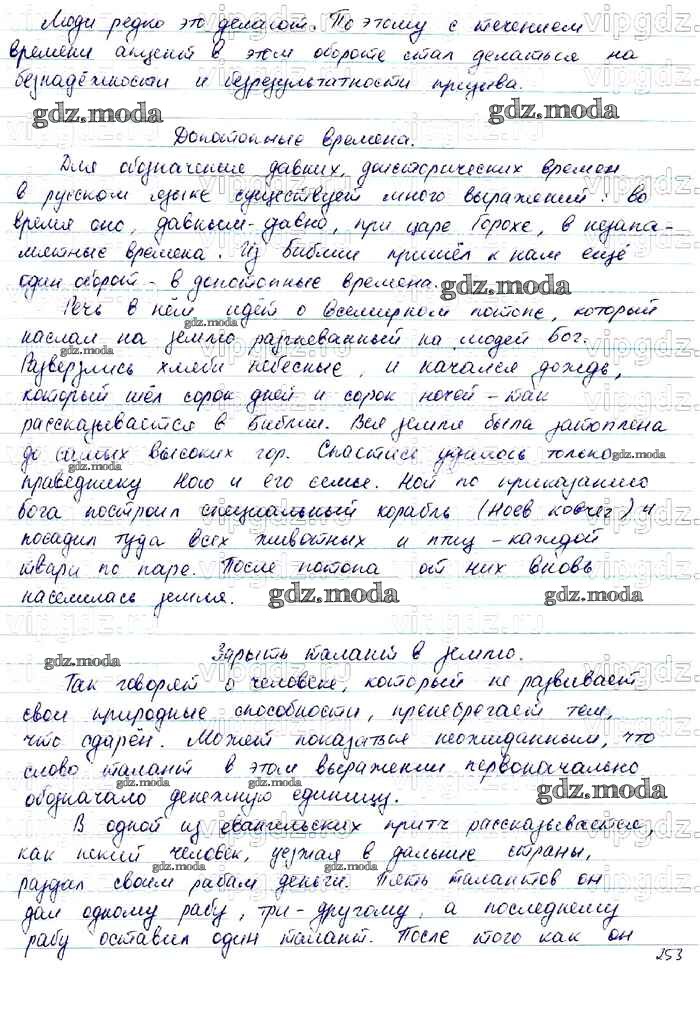 Люди редко это делают. По этому с течением
времени акцент в этом обороте стал делаться на
безнадёжности и безрезультатности призыва.
gdz.moda gdz.moda
Допотопные времена.
Для обозначения давних, доисторических времен
в русском языке существует много выражений: во
время оно, давным-давно, при царе Горохе, в незапа-
мятные времена. Из Библии пришёл к нам ещё
один оборот - в допотопные времена.
gdz.moda
Речь в нём идёт о всемирном потопе, который
gdz.moda
наслал на землю разгневанный на людей Бог.
gdz.moda
Разверзлись хляби небесные, и начался дождь,
который шёл сорок дней и сорок ночей - так
рассказывается в Библии. Вся земля была затоплена
до самых высоких гор. Спастись удалось только
gdz.moda gdz.moda
праведнику Ною и его семье. Ной по приказанию
бога построил специальный корабль (Ноев ковчег) и
посадил туда всех животных и птиц - каждой
твари по паре. После потопа от них вновь
населилась земля.
gdz.moda gdz.moda
Зарыть талант в землю.
gdz.moda
Так говорят о человеке, который не развивает
свои природные способности, пренебрегает тем,
что одарён. Может показаться неожиданным, что
слово талант в этом выражении первоначально
обозначало денежную единицу.
gdz.moda gdz.moda
В одной из евангельских притч рассказывается,
как некий человек, уезжая в дальние страны,
gdz.moda gdz.moda
раздал своим рабам деньги. Пять талантов он
дал одному рабу, три - другому, а последнему
gdz.moda
рабу оставил один талант. После того как он
253